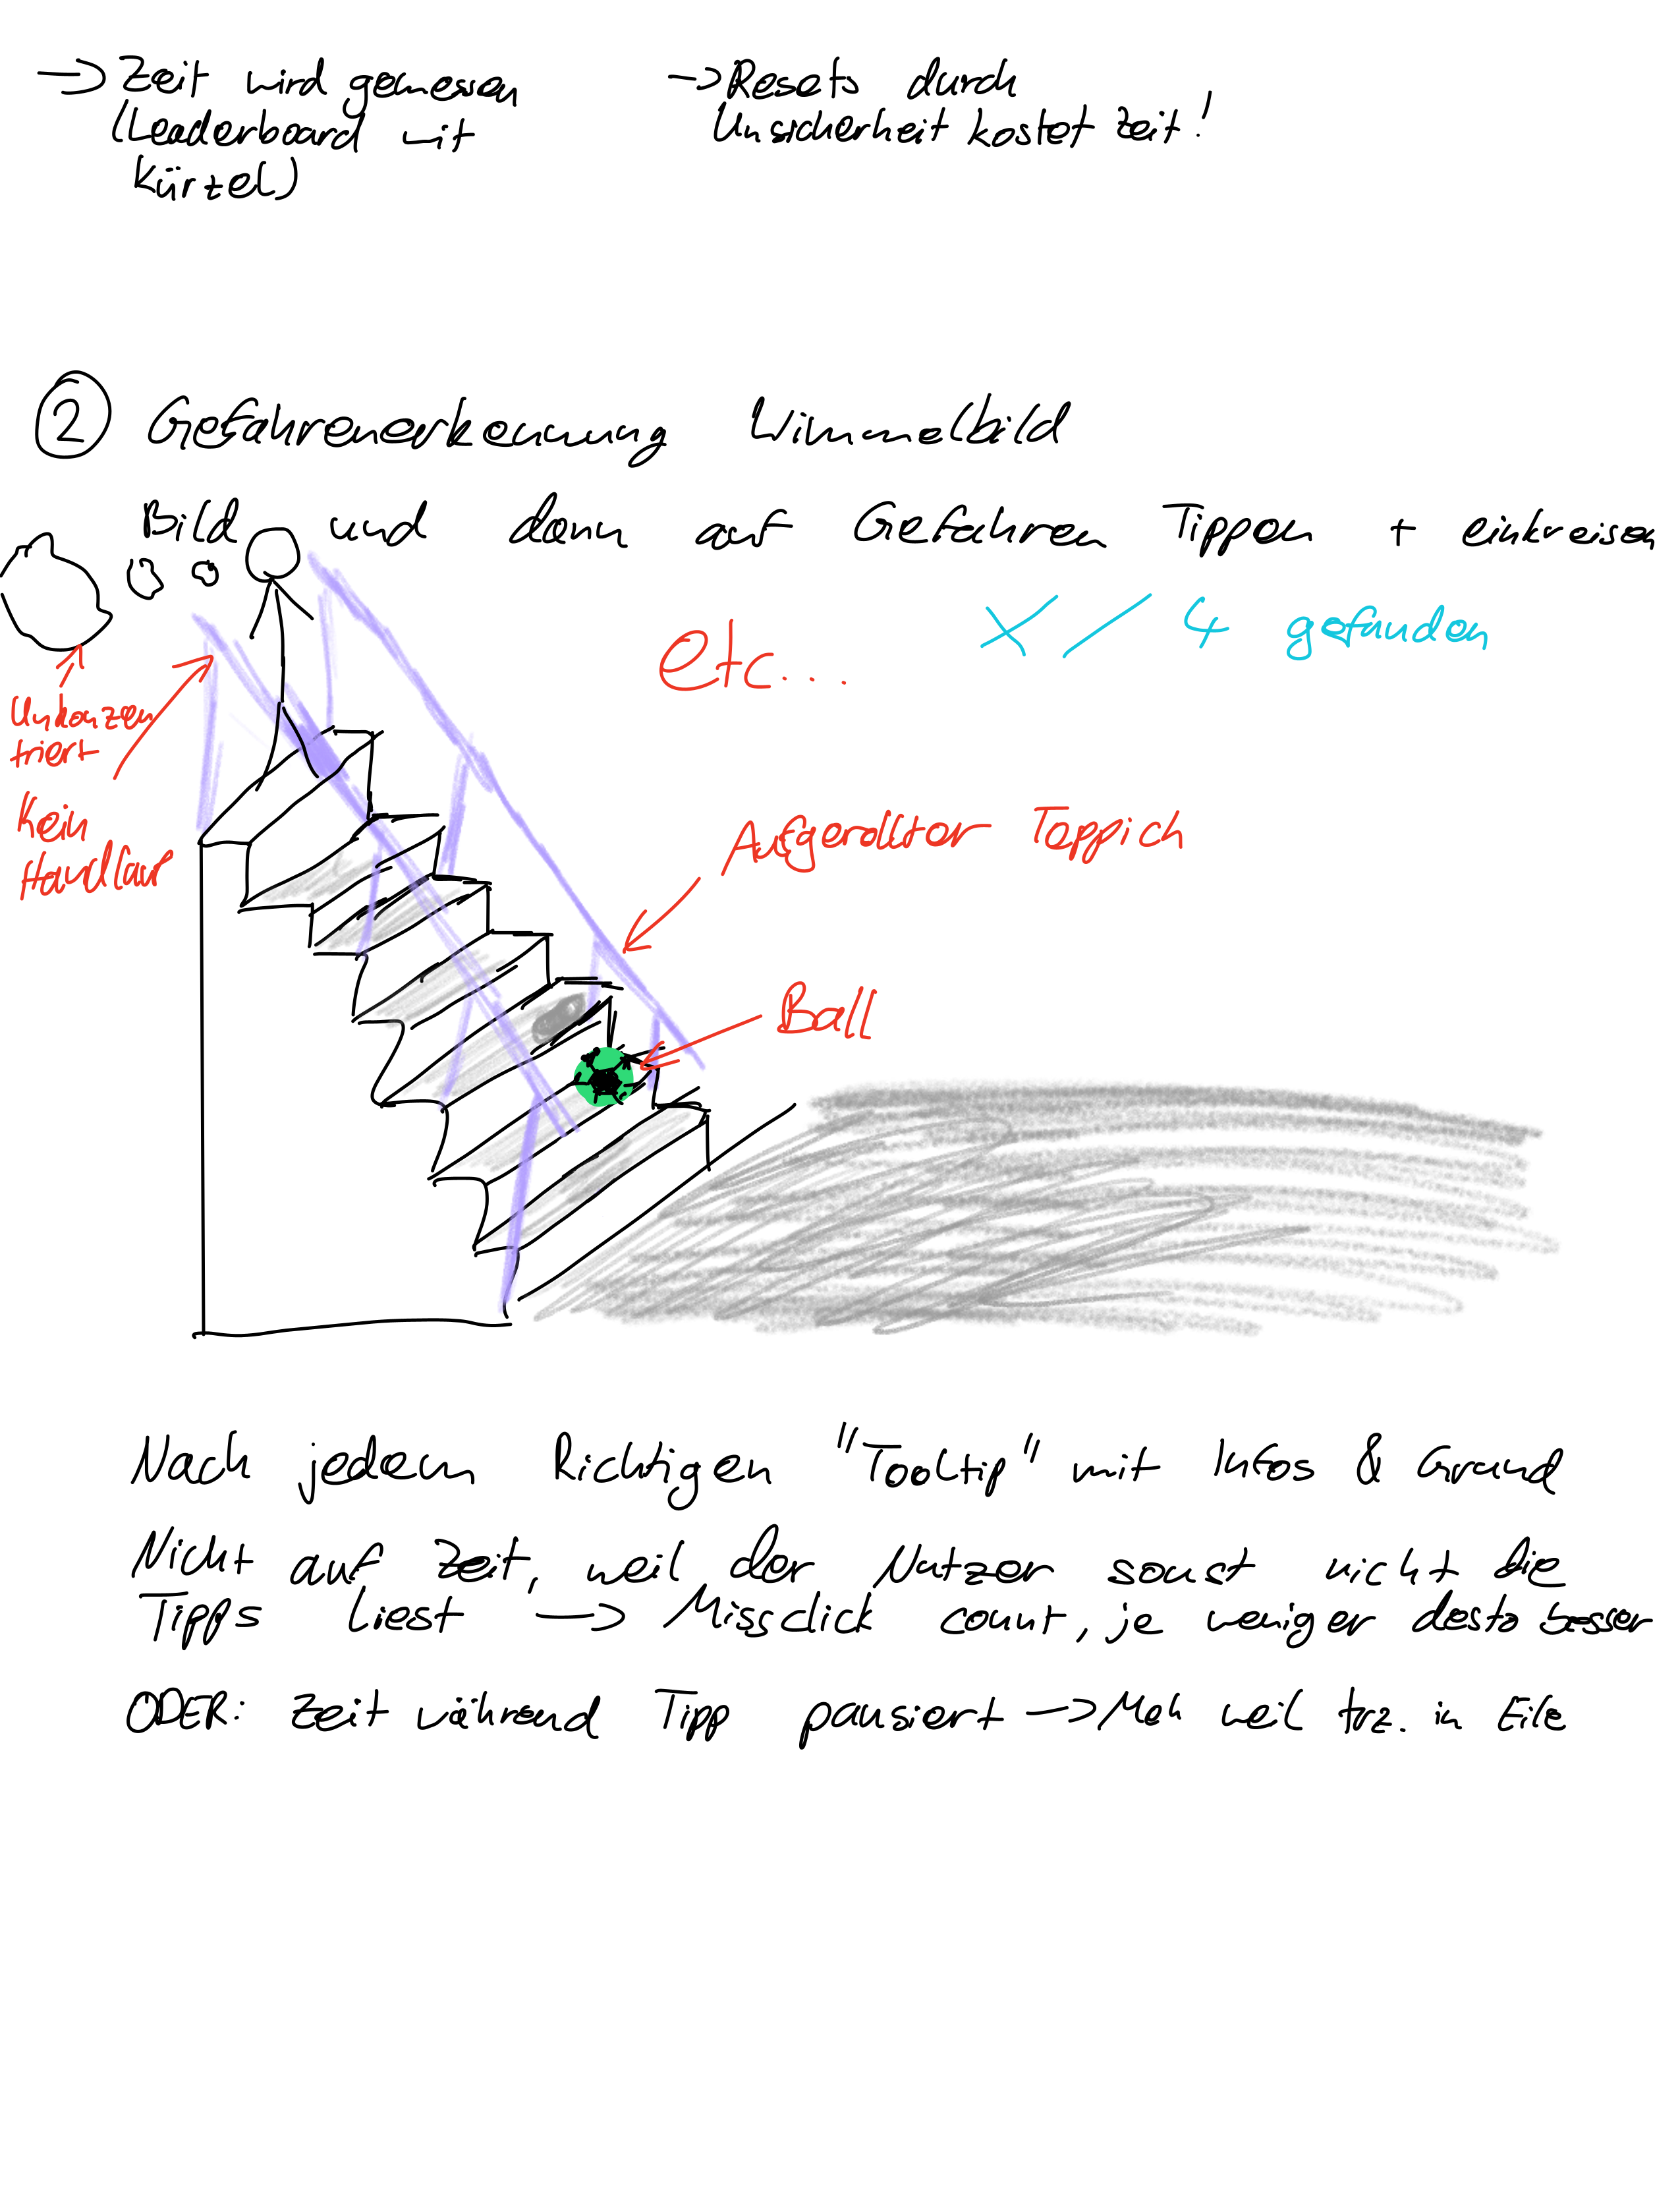 → Zeit wird gemessen
(Leaderboard mit
Kürzel)
→ Resets durch
Unsicherheit kostet Zeit!
② Gefahrenerkennung Wimmelbild
Bild und dann auf Gefahren Tippen + einkreisen
X / 4 gefunden
etc...
Unkonzen
triert
Kein
Handlauf
Aufgerollter Teppich
Ball
Nach jedem Richtigen "Tooltip" mit Infos & Grund
Nicht auf Zeit, weil der Nutzer sonst nicht die
Tipps liest → Missclick count, je weniger desto besser
ODER: Zeit während Tipp pausiert → Meh weil trz. in Eile